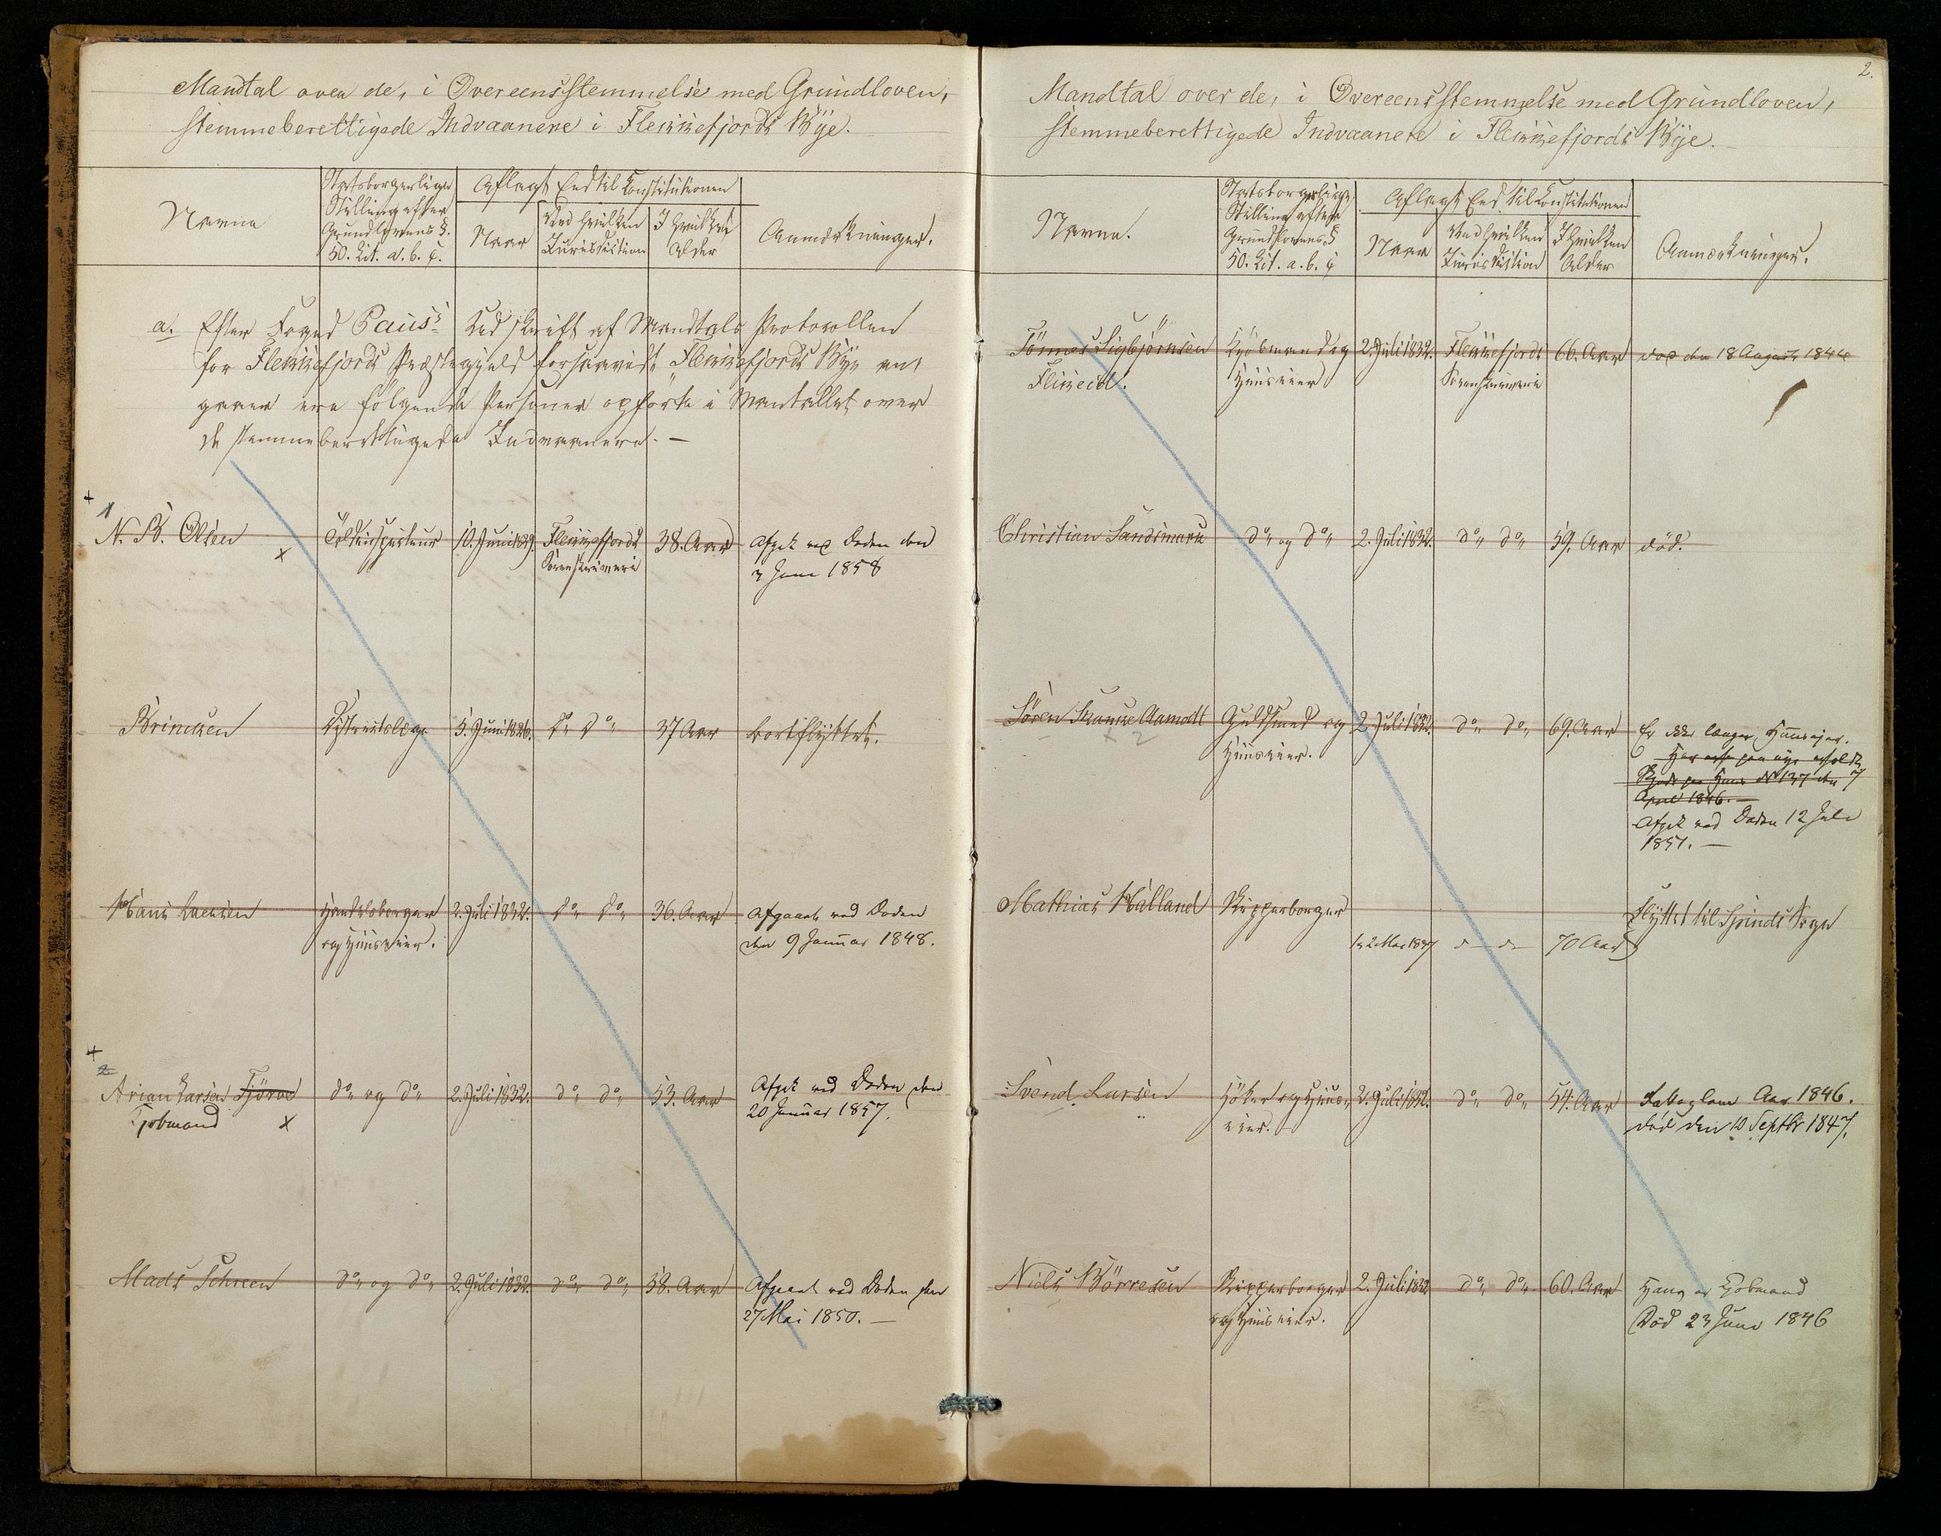 Mandtal over de, i Overeensstemmelse med Grundloven,
stemmeberettigede Indvaanere i Flekkefjords Bye.
Navne
Statsborgerlige
Stilling efter
Grundlovens §.
50. Lit. a. b. c.
Aflagt Eed til Konstitutionen
Naar
Ved hvilken
Jurisdiction
I hvilken
Alder
Anmærkninger.
a. Efter Foged Paus's Udskrift af Mandtals Protocollen
for Flekkefjords Præstegjeld forsaavidt Flekkefjords Bye an-
gaaer ere følgende Personer opførte i Mantallet over
de stemmeberettigede Indvaanere. —
+
1
N. B. Olsen
x
Toldinspecteur
10. Juni 1829.
Flekkefjords
Sorenskriveri
38. Aar
Afgik ved Døden den
3 Juni 1858
Brincken
Districtslæge
5. Juni 1826.
do do
37 Aar
bortflyttet.
Hans
Handelsborger
og Huuseier.
2. Juli 1832.
do do
36. Aar
Afgaaet ved Døden
den 9 Januar 1848.
+
2
Arian Larsen Fjørve
Kjøbmand x
do og do
2. Juli 1832.
do do
53. Aar
Afgik ved Døden den
20 Januar 1857.
Mads Schreen
do og do
2. Juli 1832.
do do
58. Aar
Afgaaet ved Døden den
27 Mai 1850. —
2.
Mandtal over de, i Overeensstemmelse med Grundloven,
stemmeberettigede Indvaanere i Flekkefjords Bye.
Navne.
Statsborgerlige
Stilling efter
Grundlovens §
50. Lit. a. b. c
Aflagt Eed til Konstitutionen
Naar
Ved hvilken
Jurisdiction
I hvilken
Alder
Anmærkninger.
Tönnes Sigbjørnsen
Flikeid.
Kjøbmand og
Huuseier
2. Juli 1832.
Flekkefjords
Sorenskriveri
66. Aar
død den 18 August 1844
Christian Sandsmark
do og do
2. Juli 1832.
do do
59. Aar
død.
Sören Skancke Aamodt
x 2
Guldsmed og
Huuseier.
2 Juli 1832.
do do
69. Aar
Er ikke længer Huuseier.
Har paa nye erholdt
Skjøde paa Huus No 137 den 7
April 1846. —
Afgik ved Døden 12 Juli
1851. —
Mathias Halland
Skipperborger
12 Mai 1837
do do
70 Aar
Flyttet til Spinds Sogn
Svend Larsen
Høker og Huus-
eier.
2. Juli 1832.
do do
54. Aar
Fattiglem Aar 1846.
død den 10 Septbr 1847.
Niels Børresen
Skipperborger
og Huuseier.
2. Juli 1832
do do
60. Aar
Han er Kjøbmand
Død 23 Juni 1846